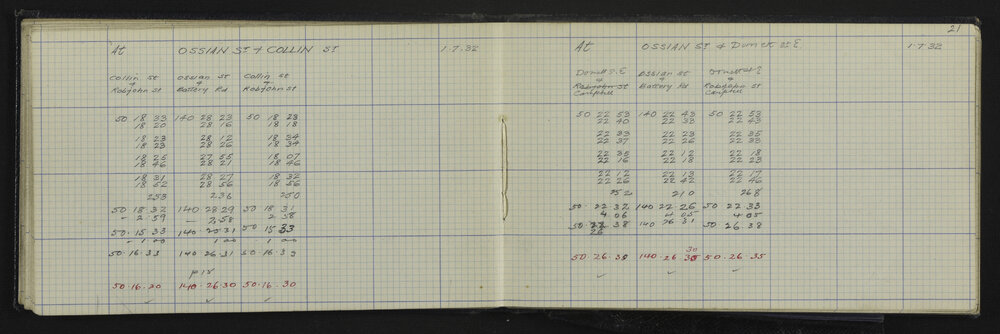 At OSSIAN ST & COLLIN ST 1.7.32
Collin St Ossian St Collin St
& & &
Robjohn St Battery Rd Robjohn St
50 18 33 140 28 23 50 18 23
18 20 28 16 18 18
18 23 28 12 18 34
18 23 28 26 18 34
18 25 27 55 18 07
18 46 28 21 18 46
18 31 28 27 18 32
18 52 28 56 18 56
253 236 250
50 18 32 140 28 29 50 18 31
- 2 59 - 2 58 2 58
50 15 33 140 25 31 50 15 33
- 1 00 1 00 1 00
50.16.33 140 26 31 50.16.33
50.16.30 140.26.30 50.16.30
21
At OSSIAN ST & St E. 1.7.32
St E Ossian St St E
& & &
Robjohn St Battery Rd Robjohn St
Campbell
50 22 53 140 22 43 50 22 53
22 40 22 33 22 43
22 33 22 23 22 35
22 37 22 26 22 33
22 35 22 12 22 18
22 16 22 18 22 23
22 12 22 13 22 17
22 26 22 42 22 46
252 210 268
50. 22 32 140 22 26 50 22 33
4 06 4 05 4 05
50. 22 38 140 26 31 50 26 38
26
30
50.26.30 140.26 30 50.26.35